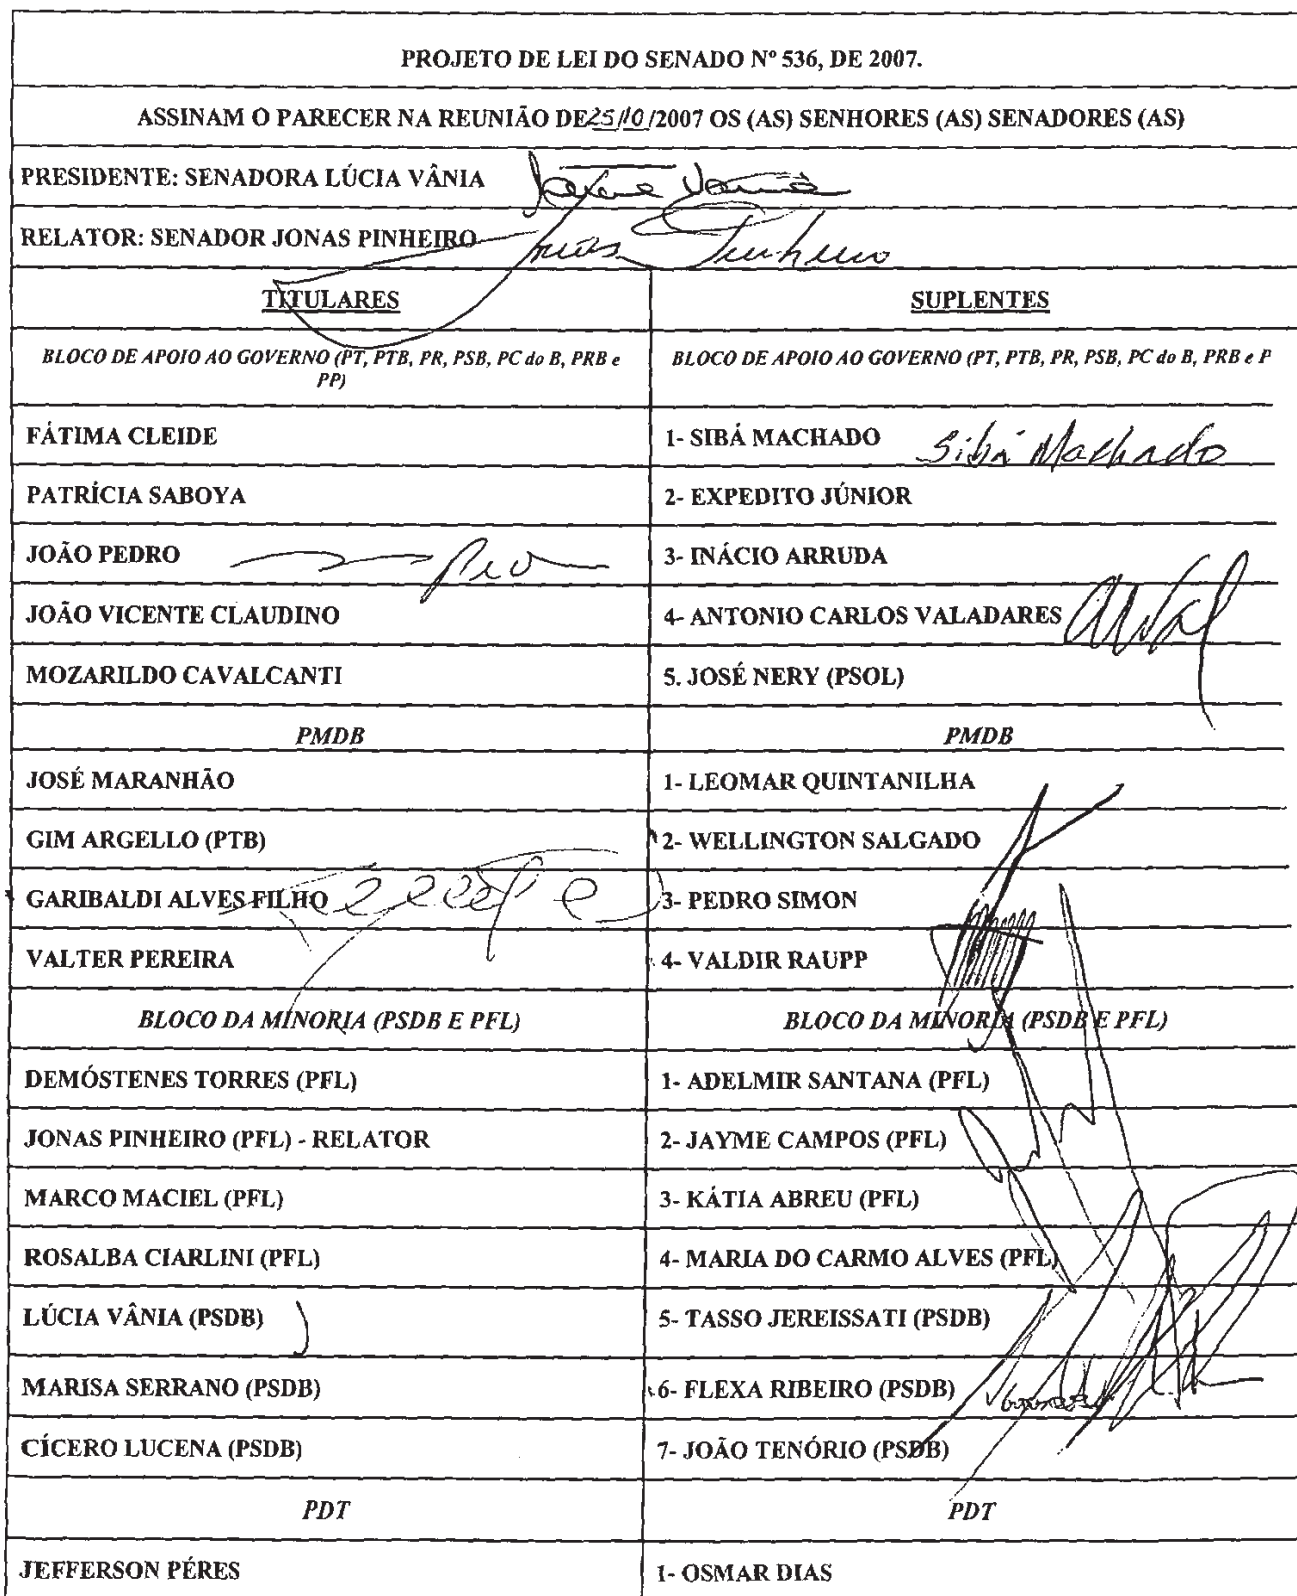 PROJETO DE LEI DO SENADO Nº 536, DE 2007.
ASSINAM O PARECER NA REUNIÃO DE 25/10/2007 OS (AS) SENHORES (AS) SENADORES (AS)
PRESIDENTE: SENADORA LÚCIA VÂNIA
RELATOR: SENADOR JONAS PINHEIRO Pinheiro
TITULARES SUPLENTES
BLOCO DE APOIO AO GOVERNO (PT, PTB, PR, PSB, PC do B, PRB e PP) BLOCO DE APOIO AO GOVERNO (PT, PTB, PR, PSB, PC do B, PRB e P
FÁTIMA CLEIDE 1- SIBÁ MACHADO Sibá Machado
PATRÍCIA SABOYA 2- EXPEDITO JÚNIOR
JOÃO PEDRO 3- INÁCIO ARRUDA
JOÃO VICENTE CLAUDINO 4- ANTONIO CARLOS VALADARES
MOZARILDO CAVALCANTI 5. JOSÉ NERY (PSOL)
PMDB PMDB
JOSÉ MARANHÃO 1- LEOMAR QUINTANILHA
GIM ARGELLO (PTB) 2- WELLINGTON SALGADO
GARIBALDI ALVES FILHO 3- PEDRO SIMON
VALTER PEREIRA 4- VALDIR RAUPP
BLOCO DA MINORIA (PSDB E PFL) BLOCO DA MINORIA (PSDB E PFL)
DEMÓSTENES TORRES (PFL) 1- ADELMIR SANTANA (PFL)
JONAS PINHEIRO (PFL) - RELATOR 2- JAYME CAMPOS (PFL)
MARCO MACIEL (PFL) 3- KÁTIA ABREU (PFL)
ROSALBA CIARLINI (PFL) 4- MARIA DO CARMO ALVES (PFL)
LÚCIA VÂNIA (PSDB) 5- TASSO JEREISSATI (PSDB)
MARISA SERRANO (PSDB) 6- FLEXA RIBEIRO (PSDB)
CÍCERO LUCENA (PSDB) 7- JOÃO TENÓRIO (PSDB)
PDT PDT
JEFFERSON PÉRES 1- OSMAR DIAS